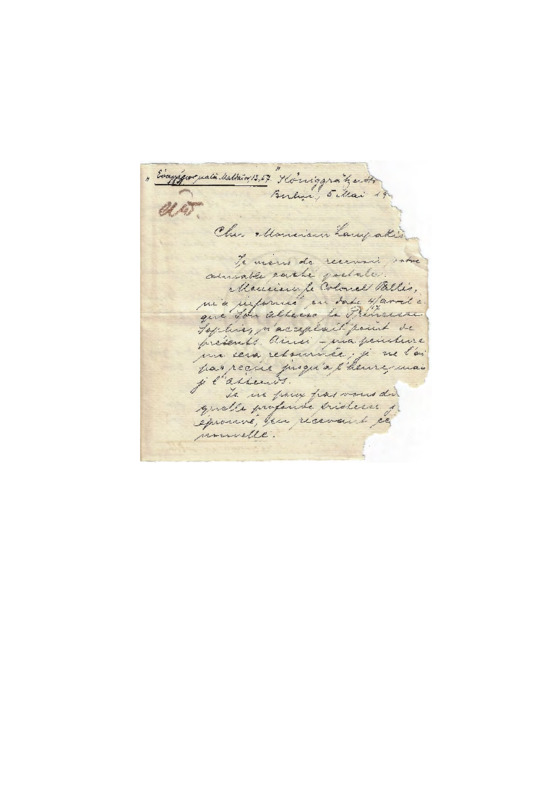 " Εὐαγγέλιον κατὰ Ματθαῖον 13,57 " Königgrätzerstr
Berlin, 5 Mai 19
Cher Monsieur Lampakis
Je viens de recevoir, votre
aimable carte postale.
Monsieur le Colonel Pallis,
m'a informé, en date 4/17 avril c
que Son Altesse la Princesse
Sophie, n'acceptait point de
présents. Ainsi – ma peinture
me sera retournée; je ne l'ai
pas reçue jusqu'à l'heure, mais
j'l'attends.
Je ne peux pas vous di
quelle profonde tristesse j
éprouvé, en recevant ce
nouvelle.